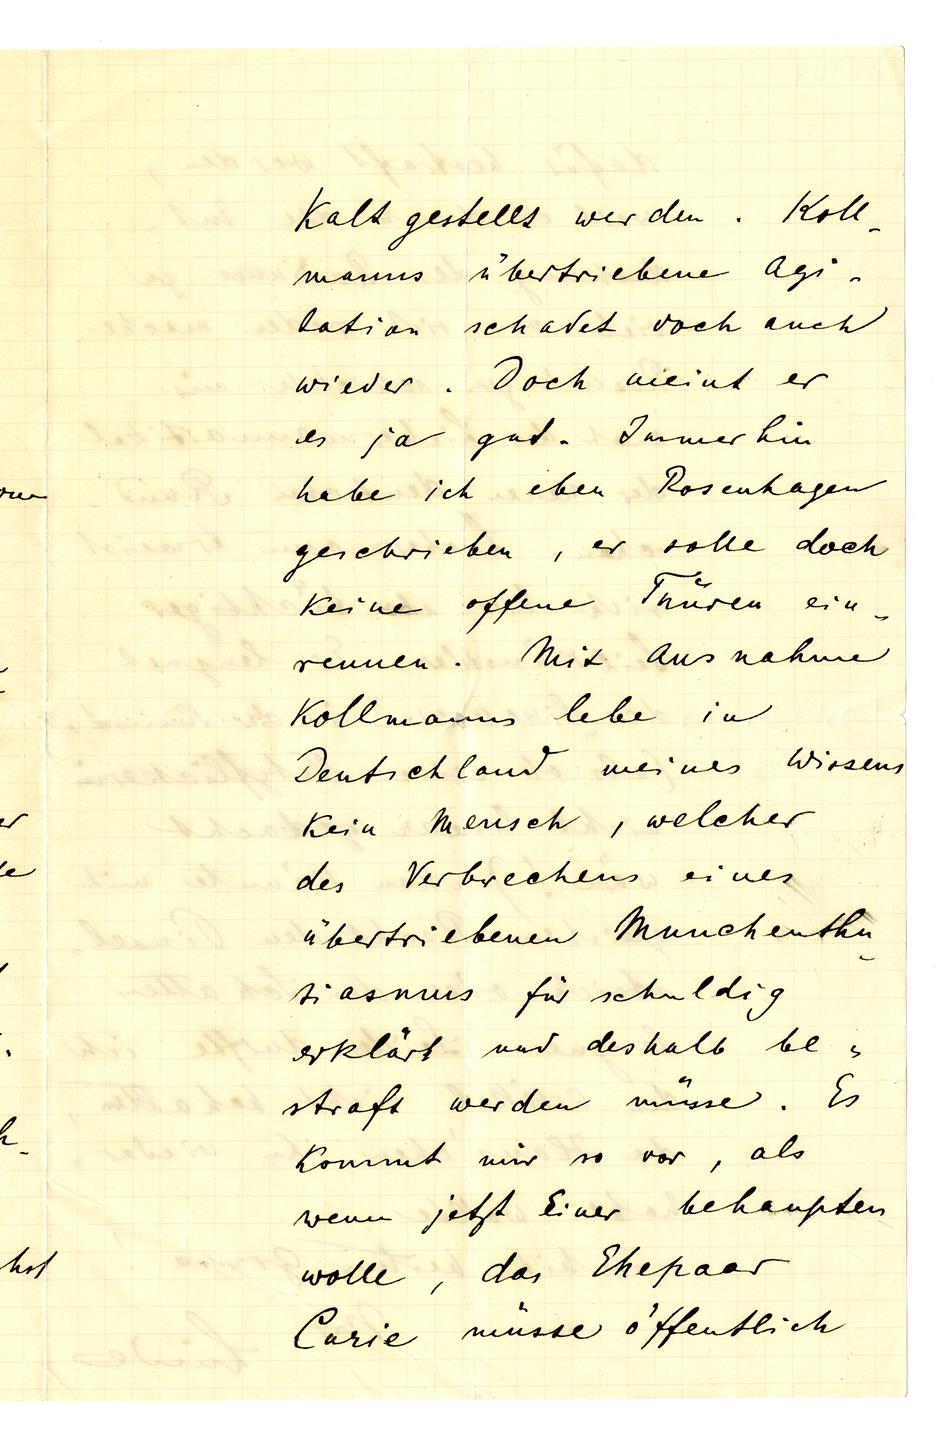 Kalt gestellt werden. Koll-
manns übertriebene Agi-
tation schadet doch auch
wieder. Doch meint er
es ja gut. Immerhin
habe ich eben Rosenhagen
geschrieben, er solle doch
keine offene Thüren ein-
rennen. Mit Ausnahme
Kollmanns lebe in
Deutschland meines Wissens
kein Mensch, welcher
des Verbrechens eines
übertriebenen Munchenthu-
siasmus für schuldig
erklärt und deshalb be-
straft werden müsse. Es
kommt mir so vor, als
wenn jetzt Einer behaupten
wolle, das Ehepaar
Curie müsse öffentlich